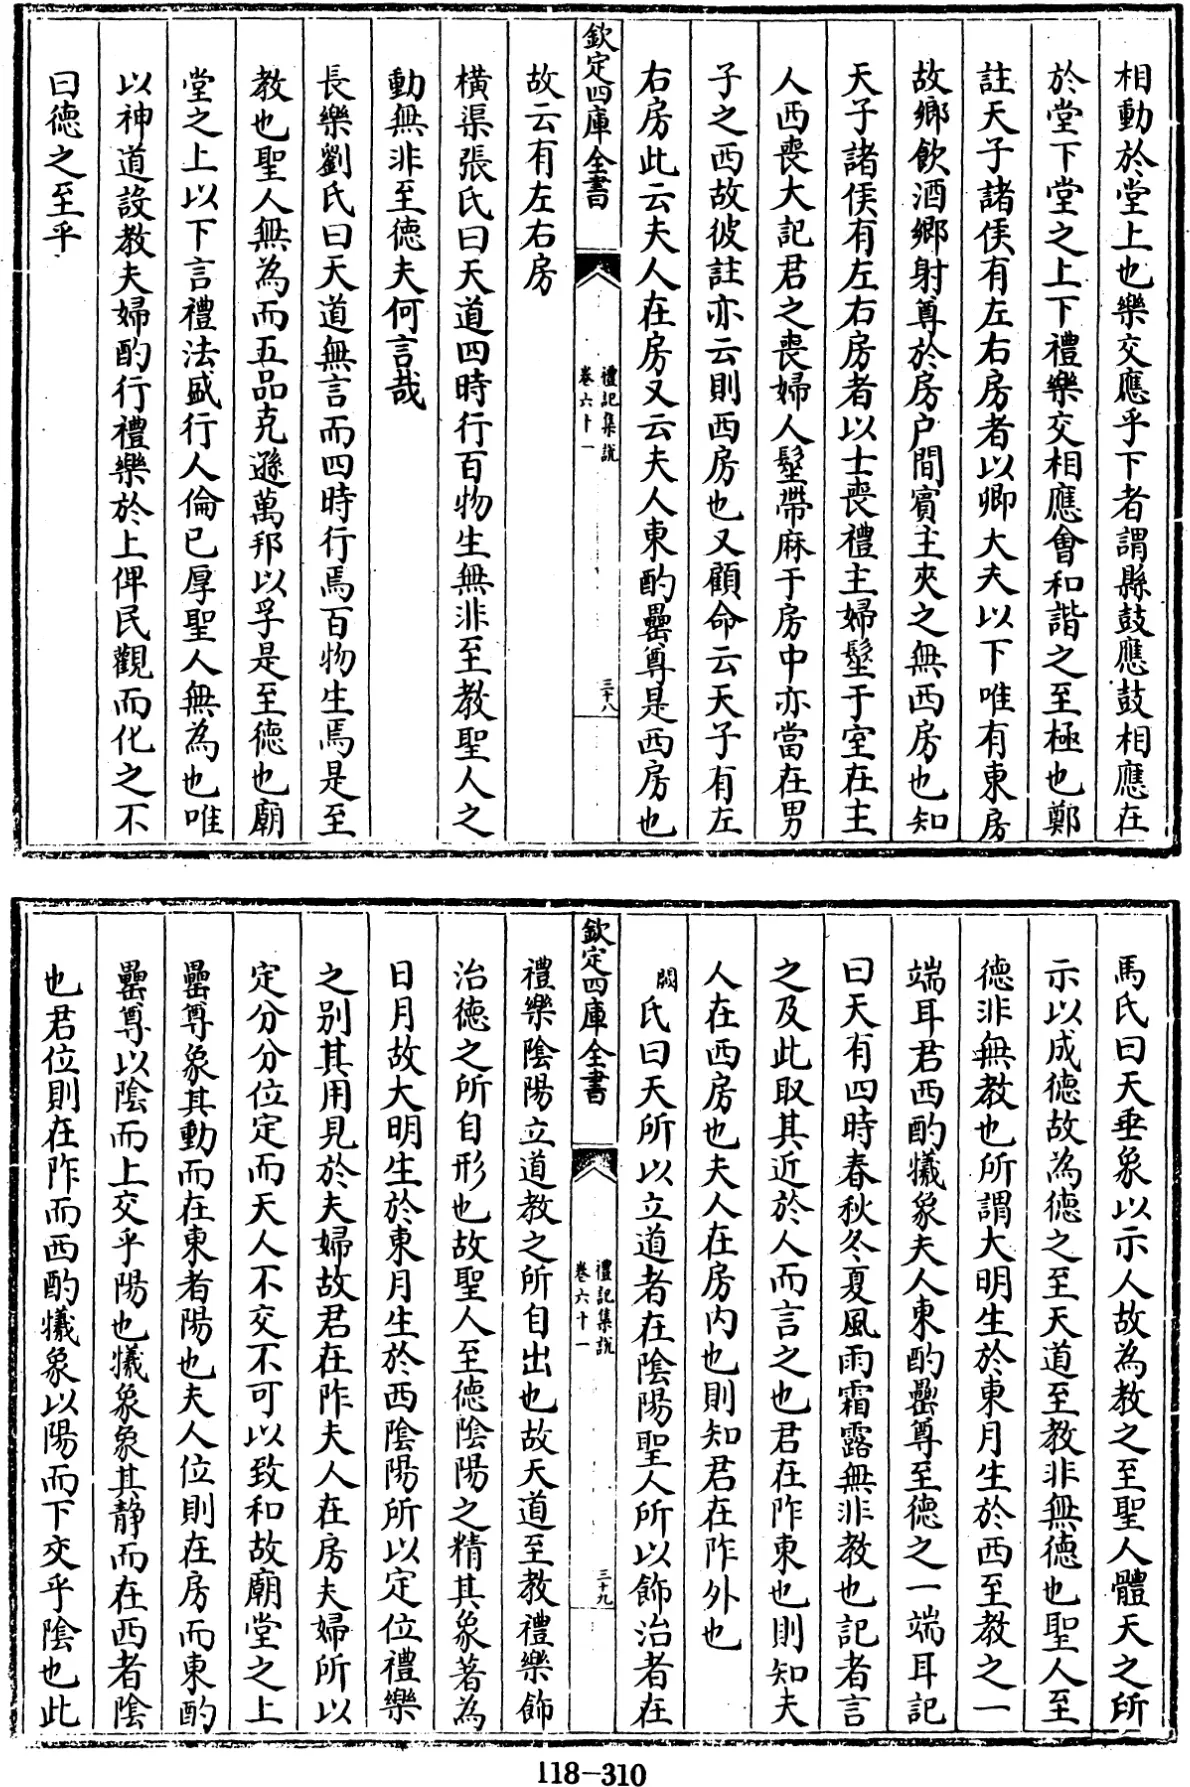 相動於堂上也樂交應乎下者謂縣鼓應鼓相應在
於堂下堂之上下禮樂交相應會和諧之至極也鄭
註天子諸侯有左右房者以卿大夫以下唯有東房
故鄉飲酒鄉射尊於房户間賓主夾之無西房也知
天子諸侯有左右房者以士喪禮主婦髽于室在主
人西喪大記君之喪婦人髽帶麻于房中亦當在男
子之西故彼註亦云則西房也又顧命云天子有左
右房此云夫人在房又云夫人東酌罍尊是西房也
故云有左右房
欽定四庫全書
禮記集說
卷六十一
三十八
橫渠張氏曰天道四時行百物生無非至教聖人之
動無非至德夫何言哉
長樂劉氏曰天道無言而四時行焉百物生焉是至
教也聖人無為而五品克遜萬邦以孚是至德也廟
堂之上以下言禮法盛行人倫已厚聖人無為也唯
以神道設教夫婦酌行禮樂於上俾民觀而化之不
曰德之至乎
馬氏曰天垂象以示人故為教之至聖人體天之所
示以成德故為德之至天道至教非無德也聖人至
德非無教也所謂大明生於東月生於西至教之一
端耳君西酌犧象夫人東酌罍尊至德之一端耳記
曰天有四時春秋冬夏風雨霜露無非教也記者言
之及此取其近於人而言之也君在阼東也則知夫
人在西房也夫人在房内也則知君在阼外也
闕氏曰天所以立道者在陰陽聖人所以飾治者在
欽定四庫全書
禮記集說
卷六十一
三十九
禮樂陰陽立道教之所自出也故天道至教禮樂飾
治德之所自形也故聖人至德陰陽之精其象著為
日月故大明生於東月生於西陰陽所以定位禮樂
之别其用見於夫婦故君在阼夫人在房夫婦所以
定分分位定而天人不交不可以致和故廟堂之上
罍尊象其動而在東者陽也夫人位則在房而東酌
罍尊以陰而上交乎陽也犧象象其静而在西者陰
也君位則在阼而西酌犧象以陽而下交乎陰也此
118-310